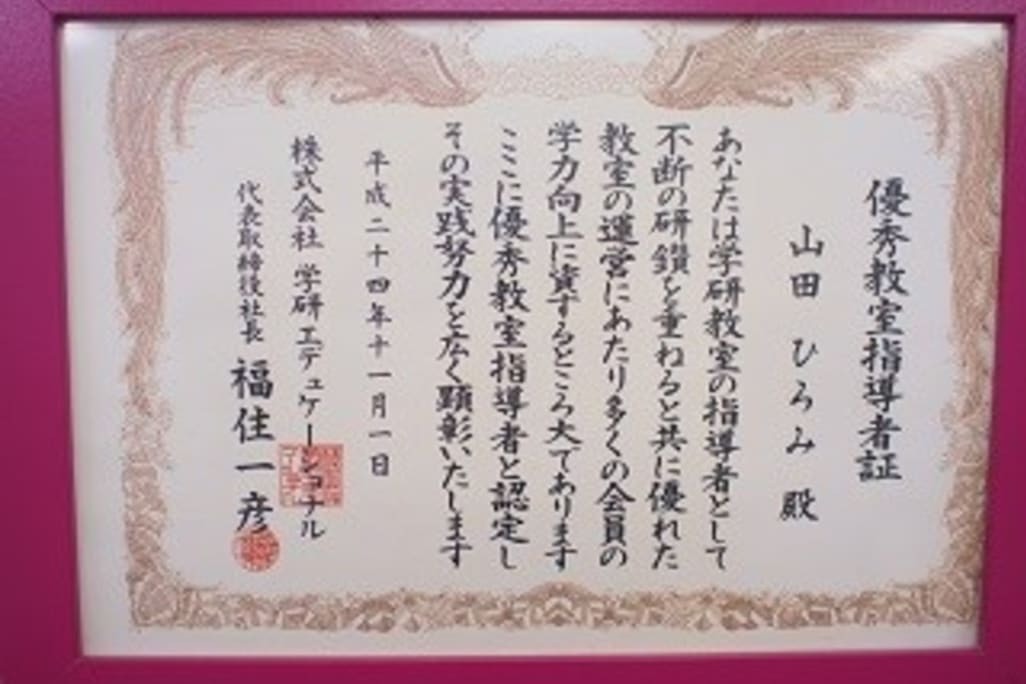 優秀教室指導者証
山田 ひろみ 殿
あなたは学研教室の指導者として
不断の研鑽を重ねると共に優れた
教室の運営にあたり多くの会員の
学力向上に資するところ大であります
ここに優秀教室指導者と認定し
その実践努力を広く顕彰いたします
平成二十四年十一月一日
株式会社 学研エデュケーショナル
代表取締役社長 福住一彦